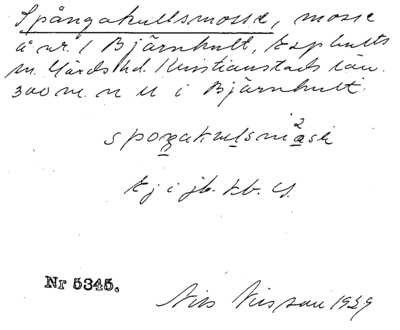 Spångakullsmosse, mosse
å nr. 1 Björnhult, Asphults
sn. Gärds hd. Kristianstads län.
300 m. n u i Björnhult.
spoŋakulsmåsе
Nr 5345.
Nils Nilsson 1929